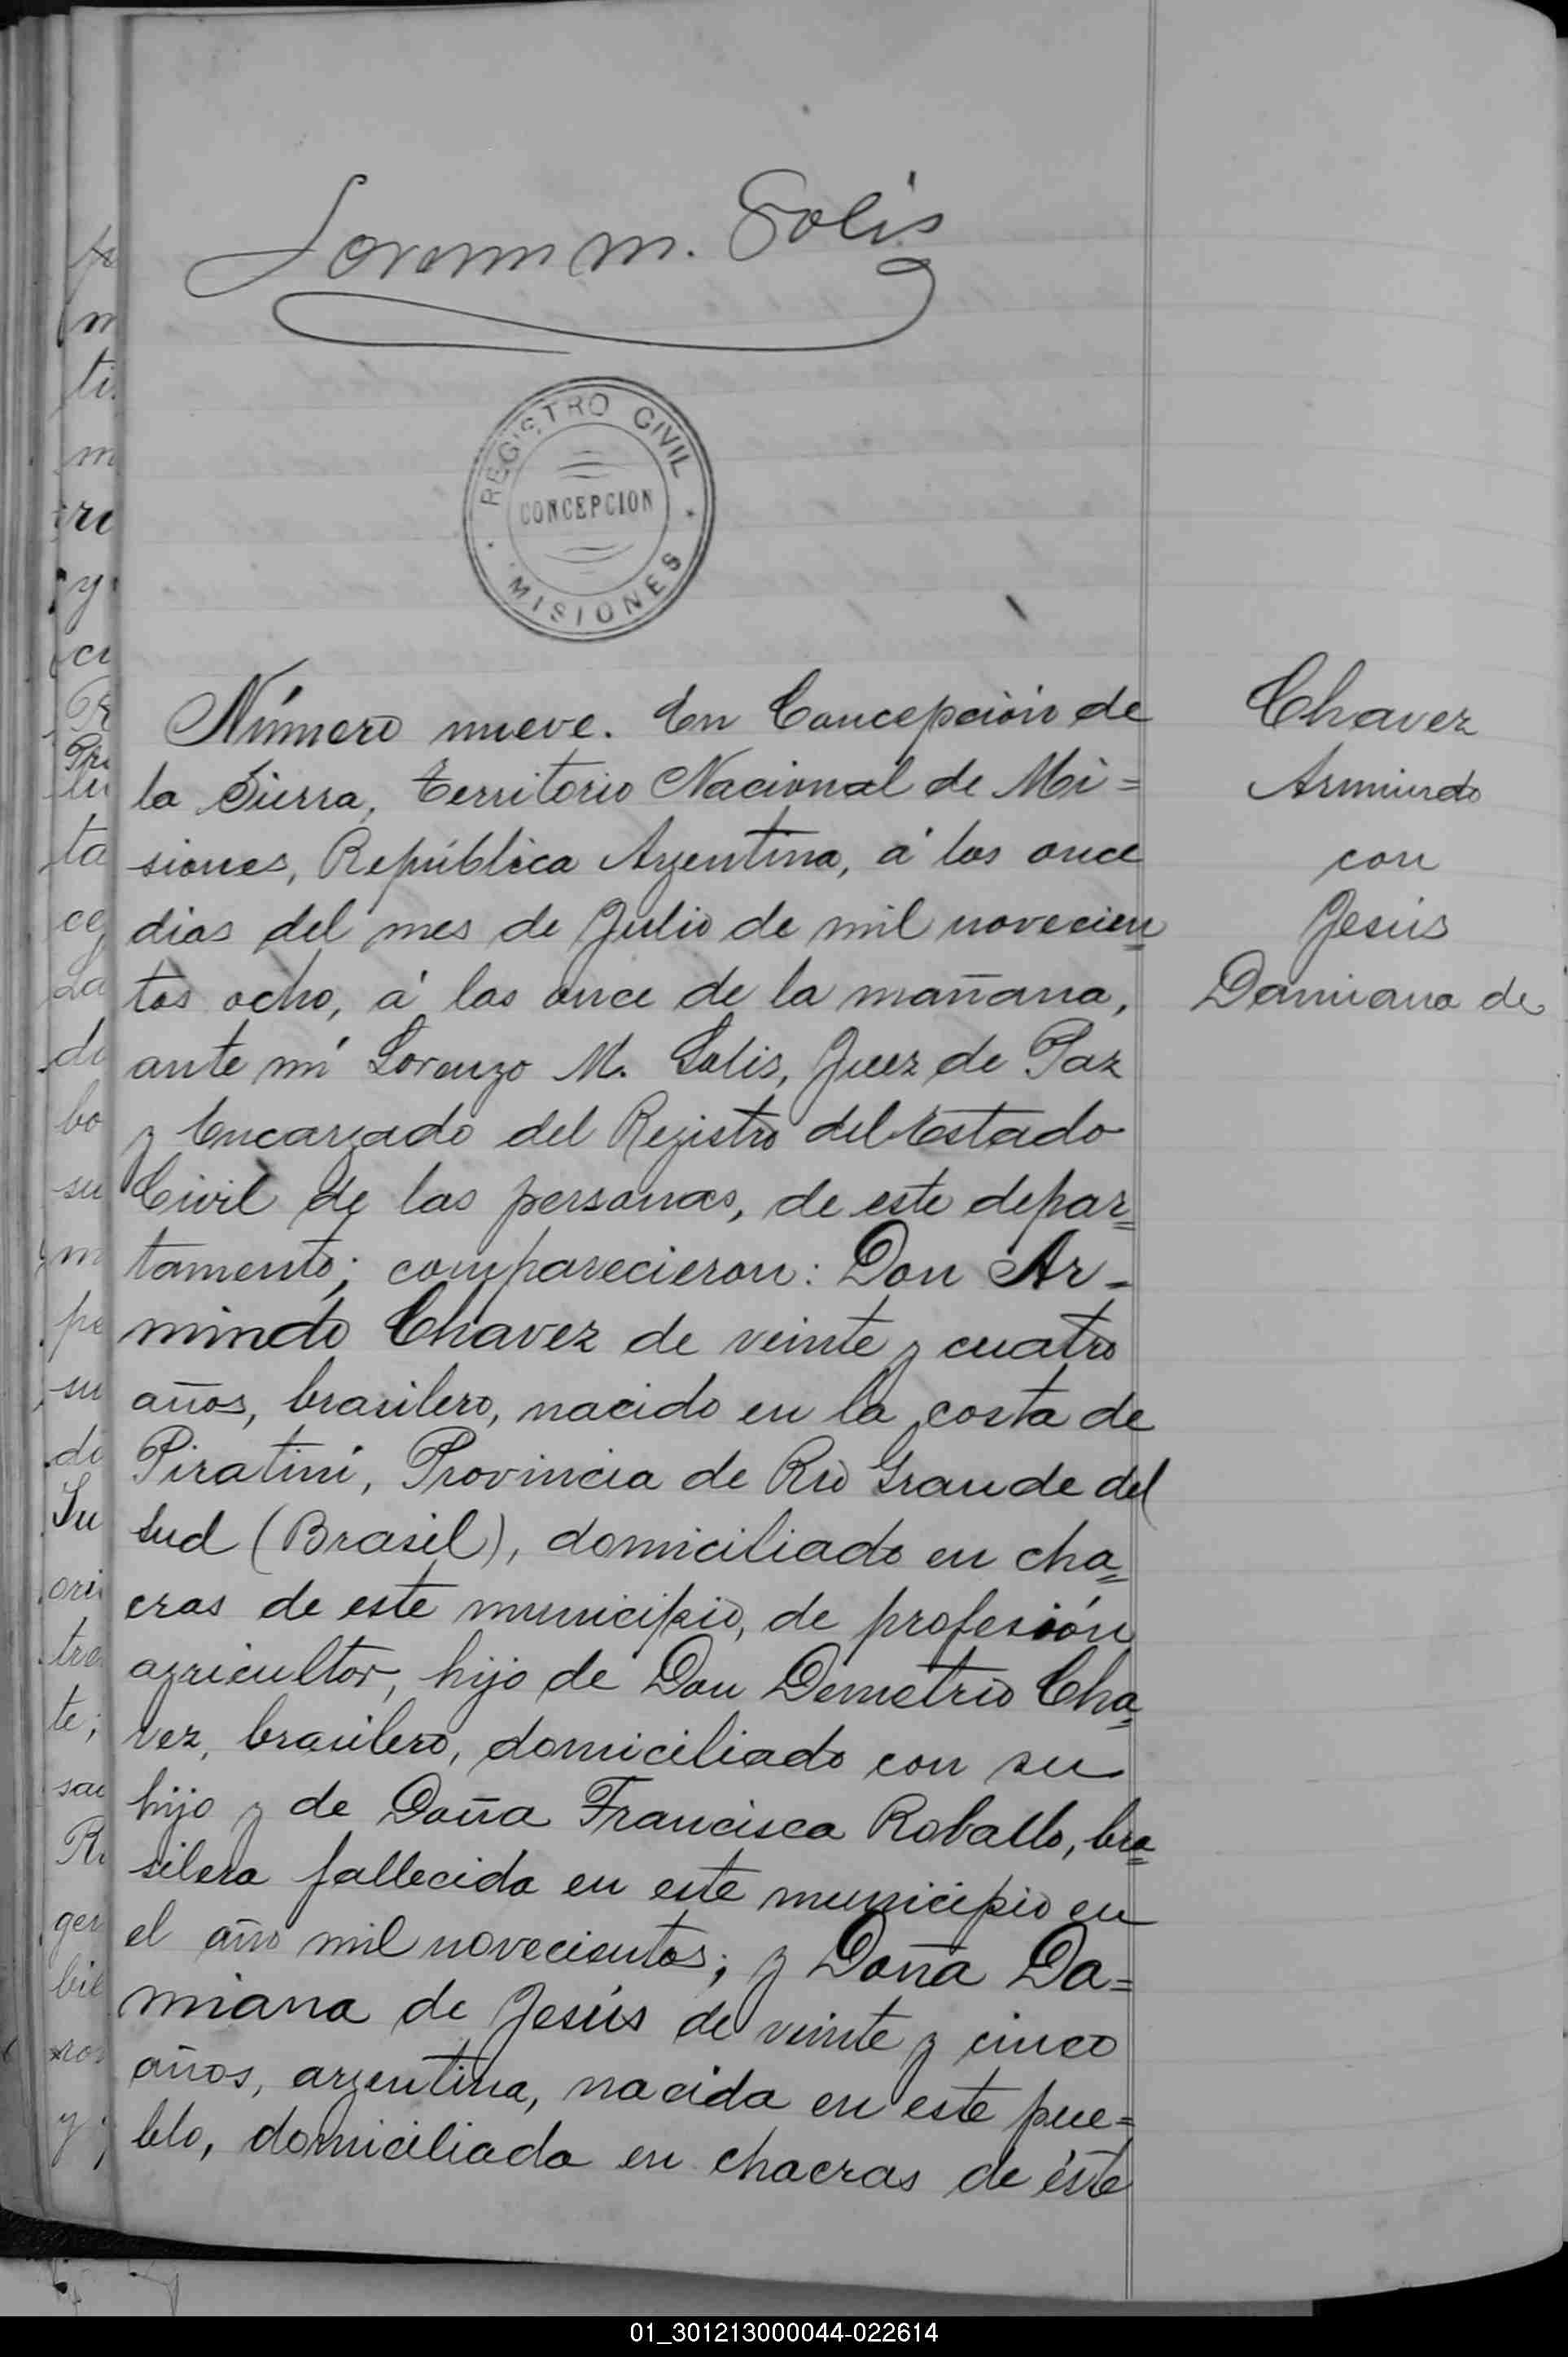 Lorenzo M. Solis
REGISTRO CIVIL
CONCEPCION
MISIONES
Número nueve. En Concepción de
la Sierra, Territorio Nacional de Mi=
siones, República Argentina, á los once
dias del mes de Julio de mil novecien=
tos ocho, á las once de la mañana,
ante mí Lorenzo M. Solis, Juez de Paz
y Encargado del Registro del Estado
Civil de las personas, de este depar=
tamento; comparecieron: Don Ar-
mindo Chavez de veinte y cuatro
años, brasilero, nacido en la costa de
Piratiní, Provincia de Rio Grande del
Sud (Brasil), domiciliado en cha=
cras de este municipio, de profesión
agricultor, hijo de Don Demetrio Cha=
vez, brasilero, domiciliado con su
hijo y de Doña Francisca Roballo, bra=
silera fallecida en este municipio en
el año mil novecientos; y Doña Da=
miana de Jesús de veinte y cinco
años, argentina, nacida en este pue=
blo, domiciliada en chacras de éste
Chavez
Armindo
con
Jesús
Damiana de
01_301213000044-022614